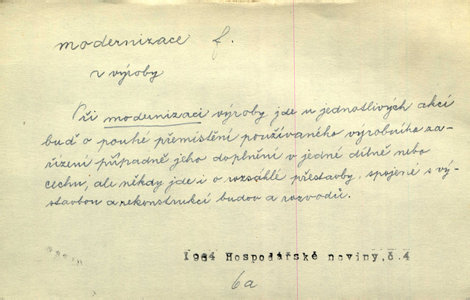 modernizace f.
~ výroby
Při modernizaci výroby jde u jednotlivých akcí
buď o pouhé přemístění používaného výrobního za-
řízení případně jeho doplnění v jedné dílně nebo
cechu, ale někdy jde i o rozsáhlé přestavby, spojené s vý-
stavbou a rekonstrukcí budov a rozvodů.
1964 Hospodářské noviny,č.4
6a